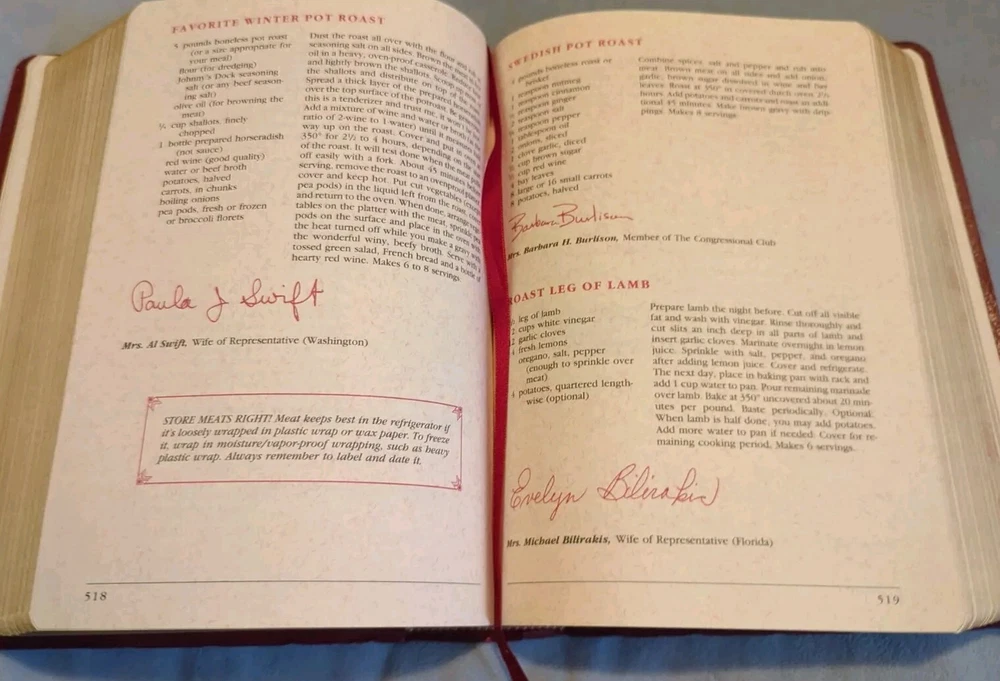 FAVORITE WINTER POT ROAST
pounds boneless pot roast
(or a size appropriate for
your meal)
flour (for dredging)
Johnny's Dock seasoning
salt (or any beef season-
ing salt)
olive oil (for browning the
meat)
cup shallots, finely
chopped
1 bottle prepared horseradish
(not sauce)
red wine (good quality)
water or beef broth
potatoes, halved
carrots, in chunks
boiling onions
pea pods, fresh or frozen
or broccoli florets
Dust the roast all over with the flour and
seasoning salt on all sides. Brown the
oil in a heavy, oven-proof casserole.
and lightly brown the shallots. Scoop up
the shallots and distribute on top of the
Spread a thick layer of the prepared
over the top surface of the potroast. Be
this is a tenderizer and trust me, it won't be
Add a mixture of wine and water or broth
ratio of 2-wine to 1-water) until it measures
way up on the roast. Cover and put in
350° for 2½ to 4 hours, depending on the
of the roast. It will test done when the meat
off easily with a fork. About 45 minutes before
serving, remove the roast to an ovenproof platter
cover and keep hot. Put cut vegetables (except
pea pods) in the liquid left from the roast, cover
and return to the oven. When done, arrange vege-
tables on the platter with the meat, sprinkle pea
pods on the surface and place in the oven with
the heat turned off while you make a gravy with
the wonderful winy, beefy broth. Serve with a
tossed green salad, French bread and a bottle of
hearty red wine. Makes 6 to 8 servings.
Paula J Swift
Mrs. Al Swift, Wife of Representative (Washington)
STORE MEATS RIGHT! Meat keeps best in the refrigerator if
it's loosely wrapped in plastic wrap or wax paper. To freeze
it, wrap in moisture/vapor-proof wrapping, such as heavy
plastic wrap. Always remember to label and date it.
518
SWEDISH POT ROAST
pounds boneless roast or
brisket
teaspoon nutmeg
teaspoon cinnamon
teaspoon ginger
teaspoon salt
teaspoon pepper
tablespoon oil
onions, sliced
clove garlic, diced
cup brown sugar
cup red wine
bay leaves
large or 16 small carrots
potatoes, halved
Combine spices, salt and pepper and rub into
meat. Brown meat on all sides and add onion,
garlic, brown sugar dissolved in wine and bay
leaves. Roast at 350° in covered dutch oven 2½
hours. Add potatoes and carrots and roast an addi-
tional 45 minutes. Make brown gravy with drip-
pings. Makes 8 servings.
Barbara Burlison
Mrs. Barbara H. Burlison, Member of The Congressional Club
ROAST LEG OF LAMB
leg of lamb
cups white vinegar
garlic cloves
fresh lemons
oregano, salt, pepper
(enough to sprinkle over
meat)
4 potatoes, quartered length-
wise (optional)
Prepare lamb the night before. Cut off all visible
fat and wash with vinegar. Rinse thoroughly and
cut slits an inch deep in all parts of lamb and
insert garlic cloves. Marinate overnight in lemon
juice. Sprinkle with salt, pepper, and oregano
after adding lemon juice. Cover and refrigerate.
The next day, place in baking pan with rack and
add 1 cup water to pan. Pour remaining marinade
over lamb. Bake at 350° uncovered about 20 min-
utes per pound. Baste periodically. Optional:
When lamb is half done, you may add potatoes.
Add more water to pan if needed. Cover for re-
maining cooking period. Makes 6 servings.
Evelyn Bilirakis
Mrs. Michael Bilirakis, Wife of Representative (Florida)
519